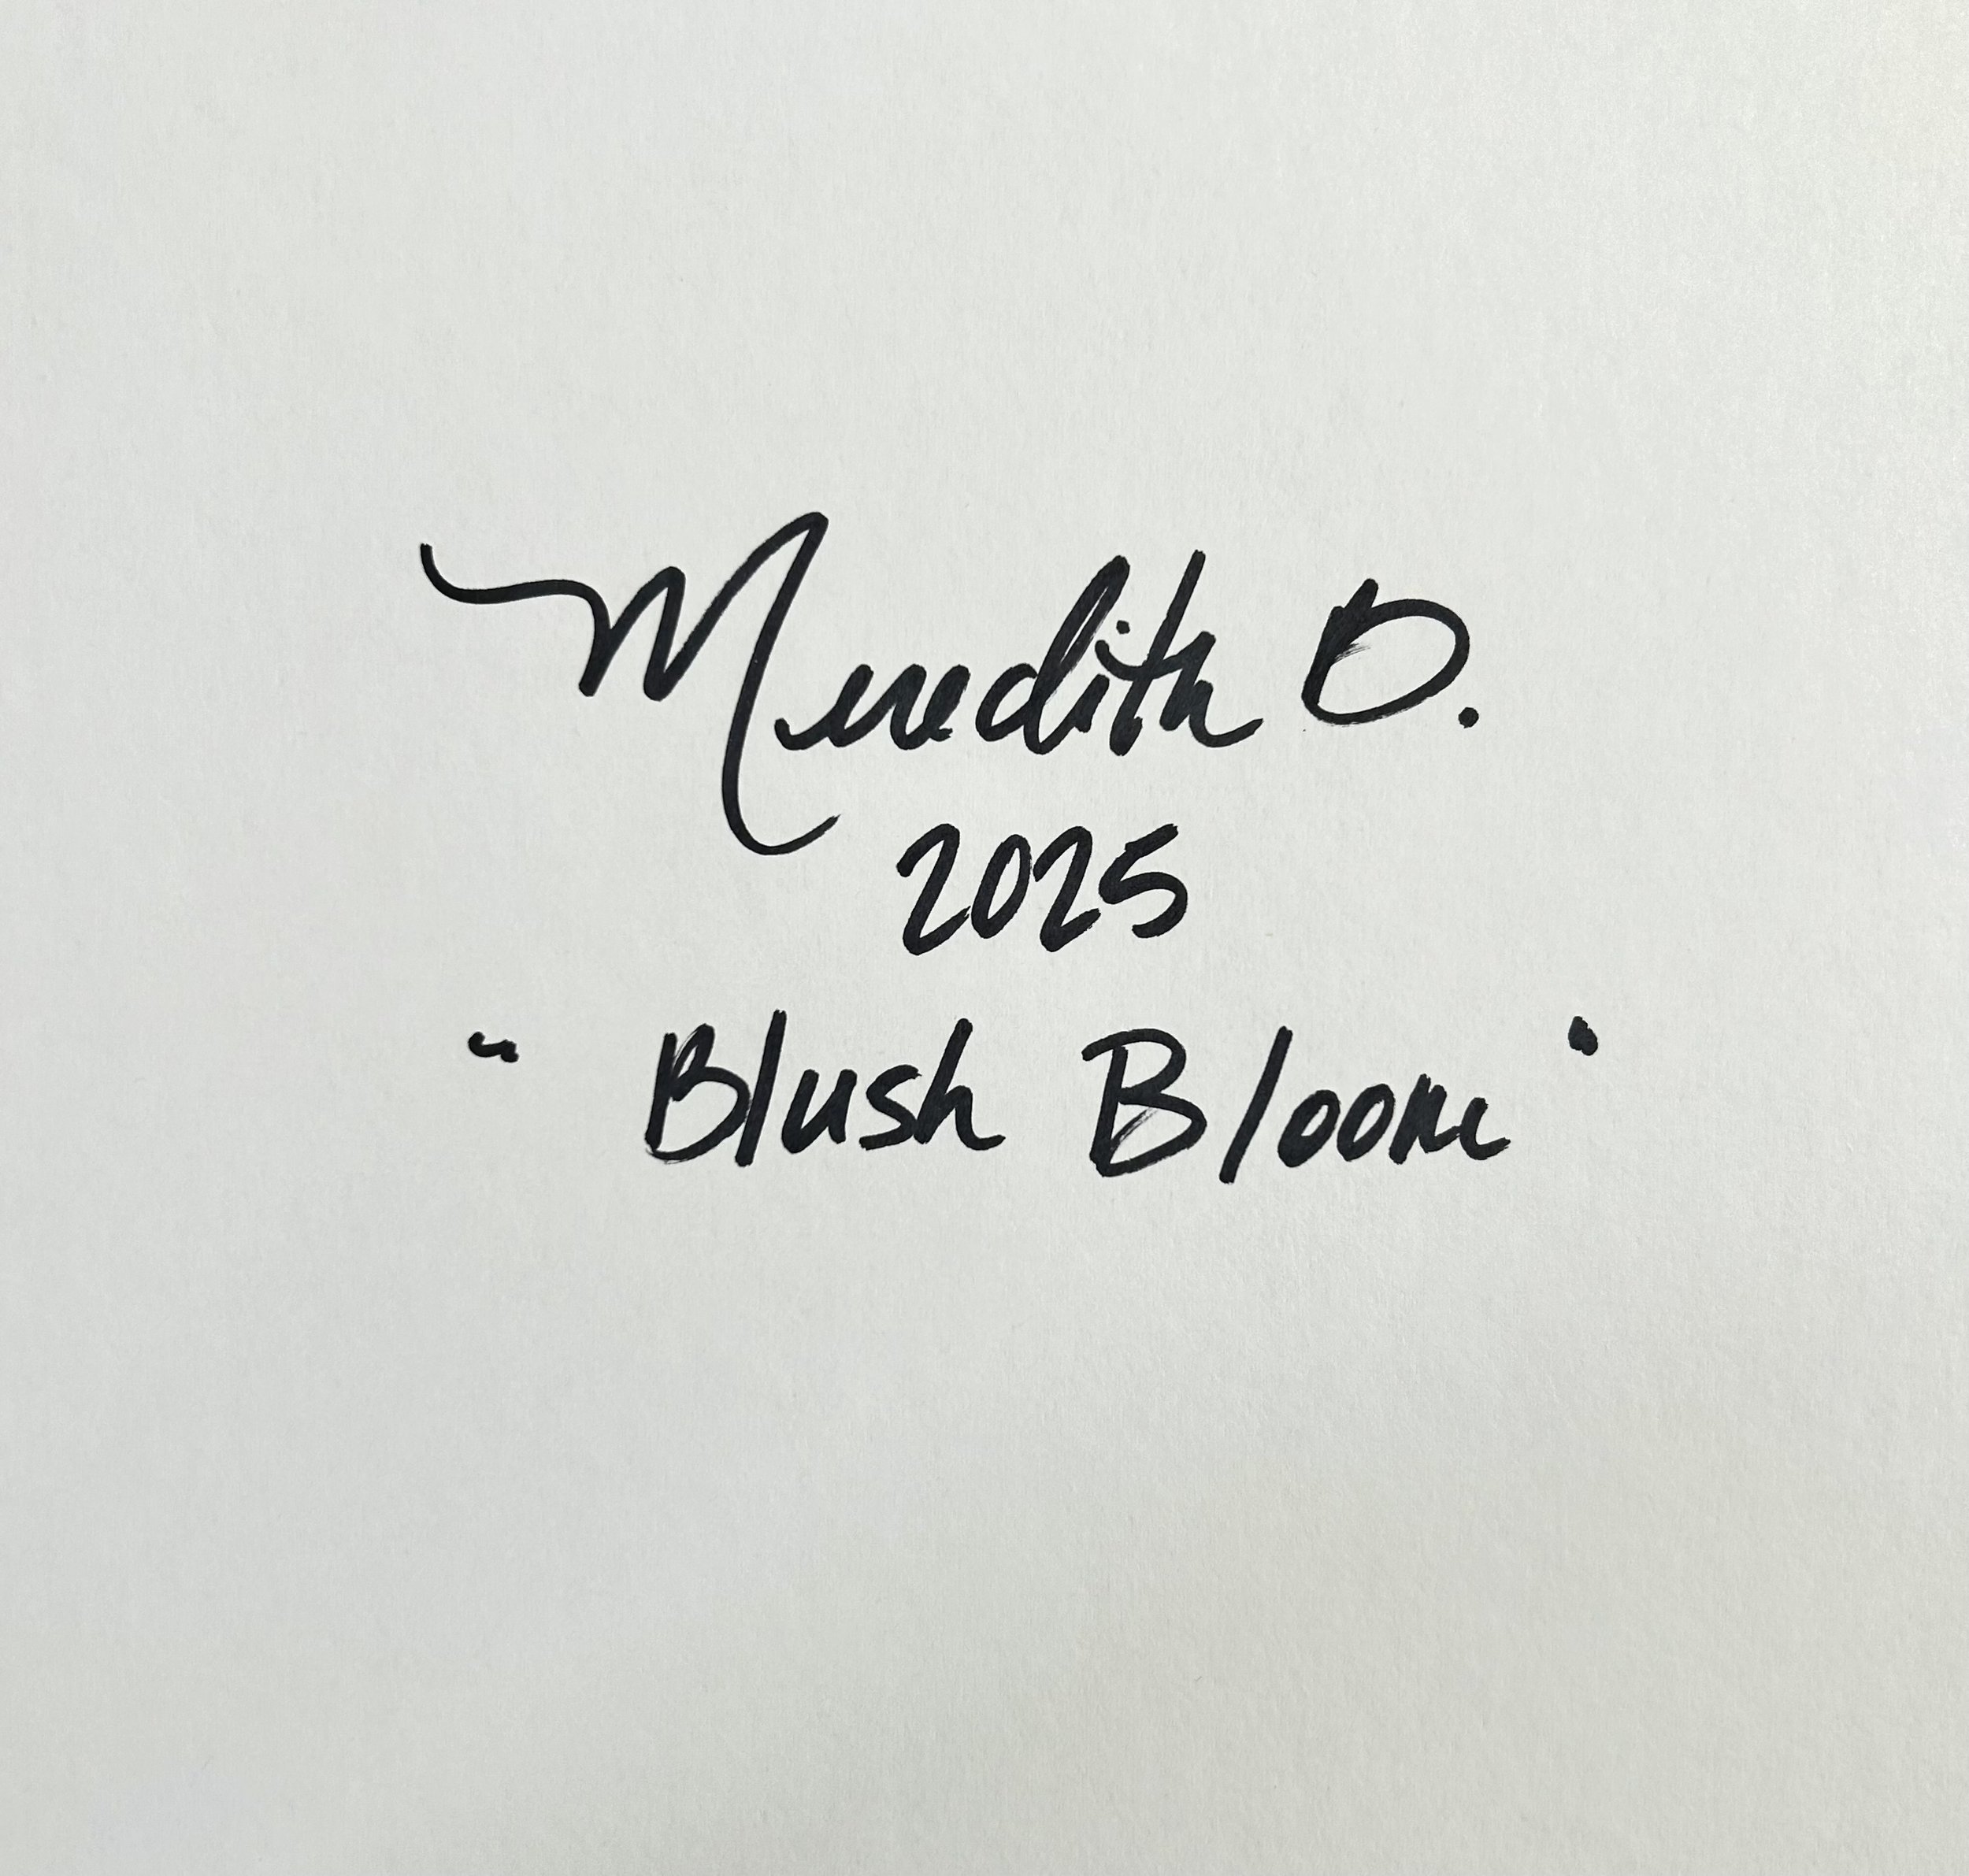 Meredith O.
2025
"Blush Bloom"